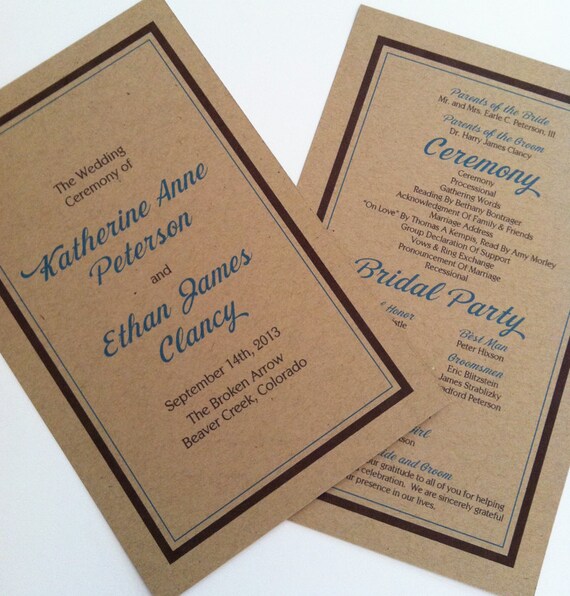 The Wedding
Ceremony of
Katherine Anne
Peterson
and
Ethan James
Clancy
September 14th, 2013
The Broken Arrow
Beaver Creek, Colorado
Parents of the Bride
Mr. and Mrs. Earle C. Peterson, III
Parents of the Groom
Dr. Harry James Clancy
Ceremony
Ceremony
Processional
Gathering Words
Reading By Bethany Bontrager
Acknowledgment Of Family & Friends
Marriage Address
"On Love" By Thomas A Kempis, Read By Amy Morley
Group Declaration Of Support
Vows & Ring Exchange
Pronouncement Of Marriage
Recessional
Bridal Party
Honor
Best Man
Peter Hixson
Groomsmen
Eric Blitzstein
James Strablizky
dford Peterson
irl
son
ide and Groom
our gratitude to all of you for helping
celebration. We are sincerely grateful
presence in our lives.